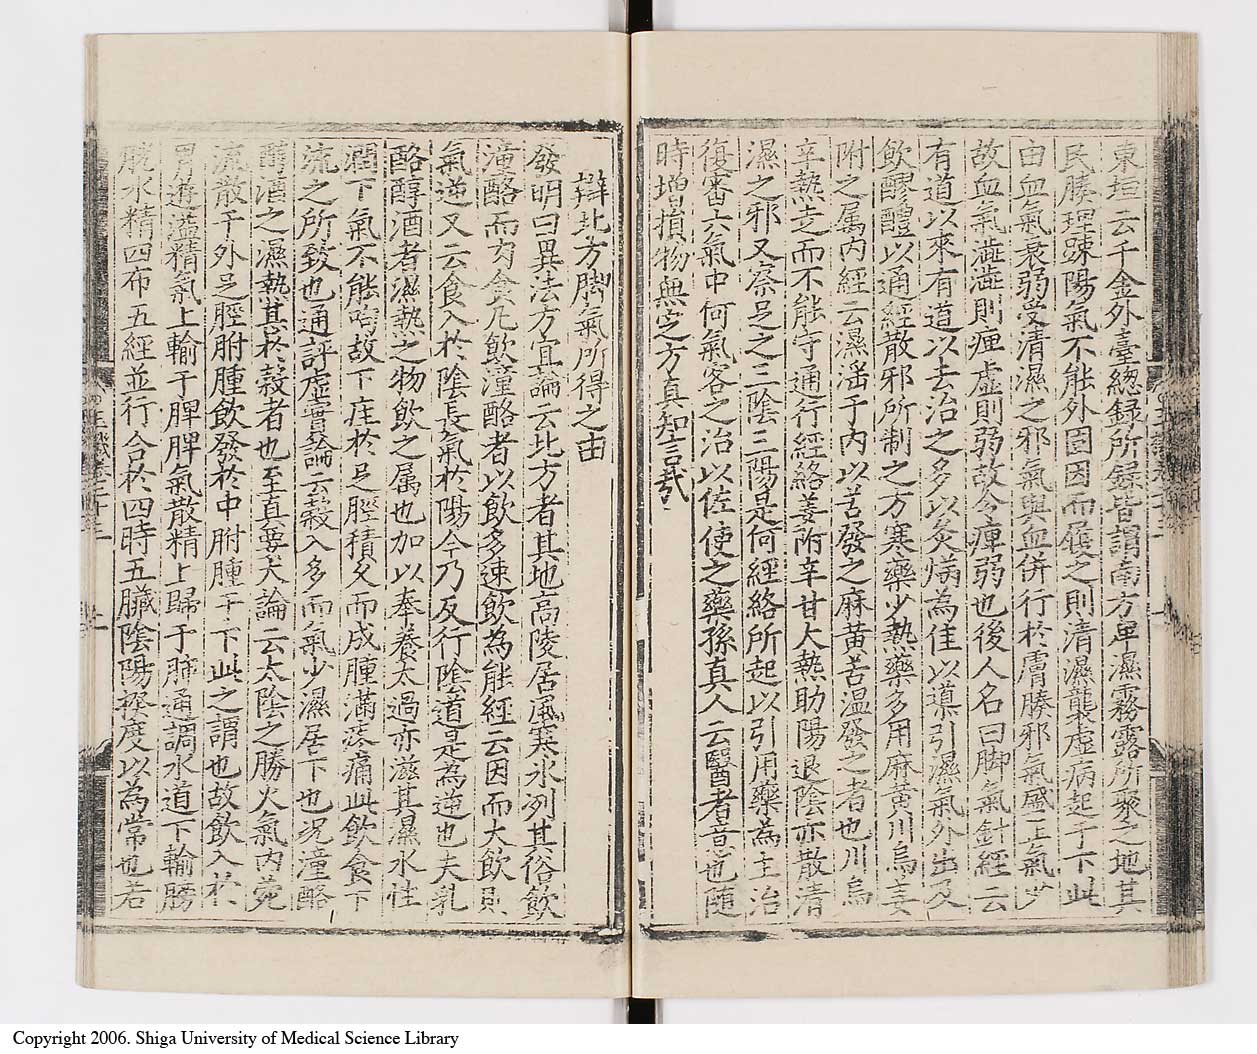 東垣云千金外臺緫録所録皆謂南方卑濕霧露所聚之地其
民腠理踈陽氣不能外固因而履之則清濕襲虚病起于下此
由血氣衰弱受清濕之邪氣與血併行於膚腠邪氣盛正氣少
故血氣澁澁則痺虚則弱故令痺弱也後人名曰脚氣針經云
有道以來有道以去治之多以灸焫為佳以導引濕氣外出及
飲醪醴以通經散邪所制之方寒藥少熱藥多用麻黄川烏姜
附之属内經云濕滛于内以苦發之麻黄苦温發之者也川烏
辛熱走而不能守通行經絡姜附辛甘大熱助陽退陰亦散清
濕之邪又察足之三陰三陽是何經絡所起以引用藥為主治
復審六氣中何氣客之治以佐使之藥孫真人云醫者意也随
時増損物無定方真知言哉
辯北方脚氣所得之由
發明曰異法方宜論云北方者其地高陵居風寒氷冽其俗飲
潼酪而肉食凡飲潼酪者以飲多速飲為能經云因而大飲則
氣逆又云食入於陰長氣於陽今乃反行陰道是為逆也夫乳
酪醇酒者濕熱之物飲之属也加以奉養太過亦滋其濕水性
潤下氣不能呴故下疰於足脛積久而成腫滿疼痛此飲食下
流之所致也通評虚實論云穀入多而氣少濕居下也况潼酪
醇酒之濕熱甚於穀者也至真要大論云太陰之勝火氣内欝
流散于外足脛胕腫飲發於中胕腫于下此之謂也故飲入於
胃遊溢精氣上輸于脾脾氣散精上歸于肺通調水道下輸膀
胱水精四布五經並行合於四時五臟陰陽揆度以為常也若